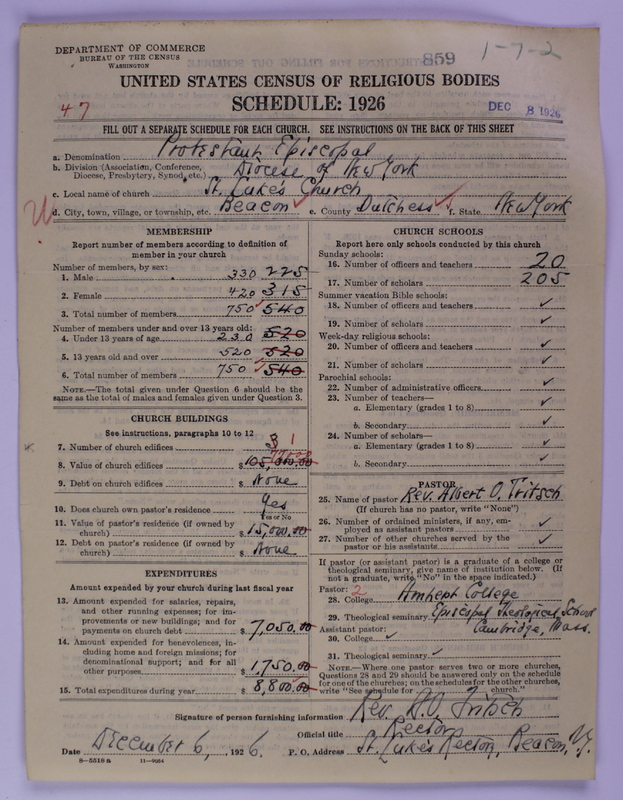 DEPARTMENT OF COMMERCE
BUREAU OF THE CENSUS
WASHINGTON
859
1-7-2
UNITED STATES CENSUS OF RELIGIOUS BODIES
SCHEDULE: 1926
47
DEC 8 1926
FILL OUT A SEPARATE SCHEDULE FOR EACH CHURCH. SEE INSTRUCTIONS ON THE BACK OF THIS SHEET
a. Denomination Protestant Episcopal
b. Division (Association, Conference, Diocese, Presbytery, Synod, etc.) Diocese of New York
c. Local name of church St. Luke's Church
d. City, town, village, or township, etc. Beacon e. County Dutchess f. State New York
MEMBERSHIP
Report number of members according to definition of
member in your church
Number of members, by sex:
1. Male 330 225
2. Female 420 315
3. Total number of members 750 540
Number of members under and over 13 years old:
4. Under 13 years of age 230 520
5. 13 years old and over 520 520
6. Total number of members 750 540
NOTE.—The total given under Question 6 should be the
same as the total of males and females given under Question 3.
CHURCH BUILDINGS
See instructions, paragraphs 10 to 12
7. Number of church edifices 3 1
8. Value of church edifices $105,000.00
9. Debt on church edifices $ None
10. Does church own pastor's residence Yes
Yes or No
11. Value of pastor's residence (if owned by
church) $15,000.00
12. Debt on pastor's residence (if owned by
church) $ None
EXPENDITURES
Amount expended by your church during last fiscal year
13. Amount expended for salaries, repairs,
and other running expenses; for im-
provements or new buildings; and for
payments on church debt $7,050.00
14. Amount expended for benevolences, in-
cluding home and foreign missions; for
denominational support; and for all
other purposes $1,750.00
15. Total expenditures during year $8,800.00
CHURCH SCHOOLS
Report here only schools conducted by this church
Sunday schools:
16. Number of officers and teachers 20
17. Number of scholars 205
Summer vacation Bible schools:
18. Number of officers and teachers ✓
19. Number of scholars ✓
Week-day religious schools:
20. Number of officers and teachers ✓
21. Number of scholars ✓
Parochial schools:
22. Number of administrative officers ✓
23. Number of teachers—
a. Elementary (grades 1 to 8) ✓
b. Secondary ✓
24. Number of scholars—
a. Elementary (grades 1 to 8) ✓
b. Secondary ✓
PASTOR
25. Name of pastor Rev. Albert O. Tritsch
(If church has no pastor, write "None")
26. Number of ordained ministers, if any, em-
ployed as assistant pastors ✓
27. Number of other churches served by the
pastor or his assistants ✓
If pastor (or assistant pastor) is a graduate of a college or
theological seminary, give name of institution below. (If
not a graduate, write "No" in the space indicated.)
Pastor: 2
28. College Amherst College
29. Theological seminary Episcopal Theological School
Cambridge, Mass.
Assistant pastor:
30. College ✓
31. Theological seminary ✓
NOTE.—Where one pastor serves two or more churches,
Questions 28 and 29 should be answered only on the schedule
for one of the churches; on the schedules for the other churches,
write "See schedule for church."
Signature of person furnishing information Rev. A.O. Tritsch
Official title Rector
Date December 6, 1926. P. O. Address St. Luke's Rectory, Beacon, N.Y.
8—5518 a 11—9364